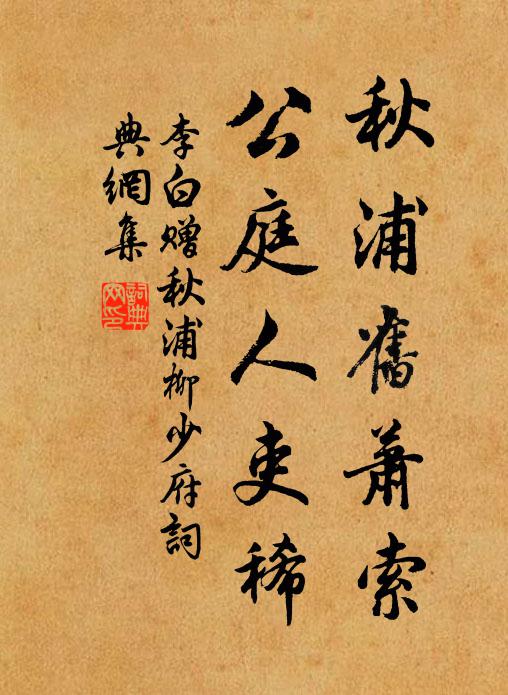 秋浦舊蕭索
公庭人吏稀
李白贈秋浦柳少府詞
典網集
詞典
网印